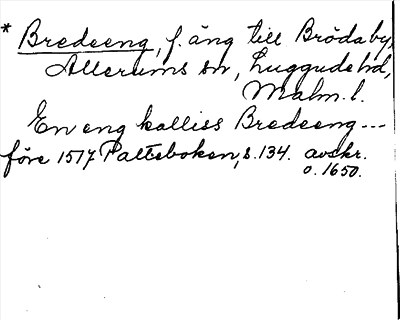 * Bredeeng, f. äng till Brödaby,
Allerums sn, Luggude hd,
Malm. l.
En eng kalliss Bredeeng ---
före 1517 Palteboken, s. 134. avskr.
o. 1650.